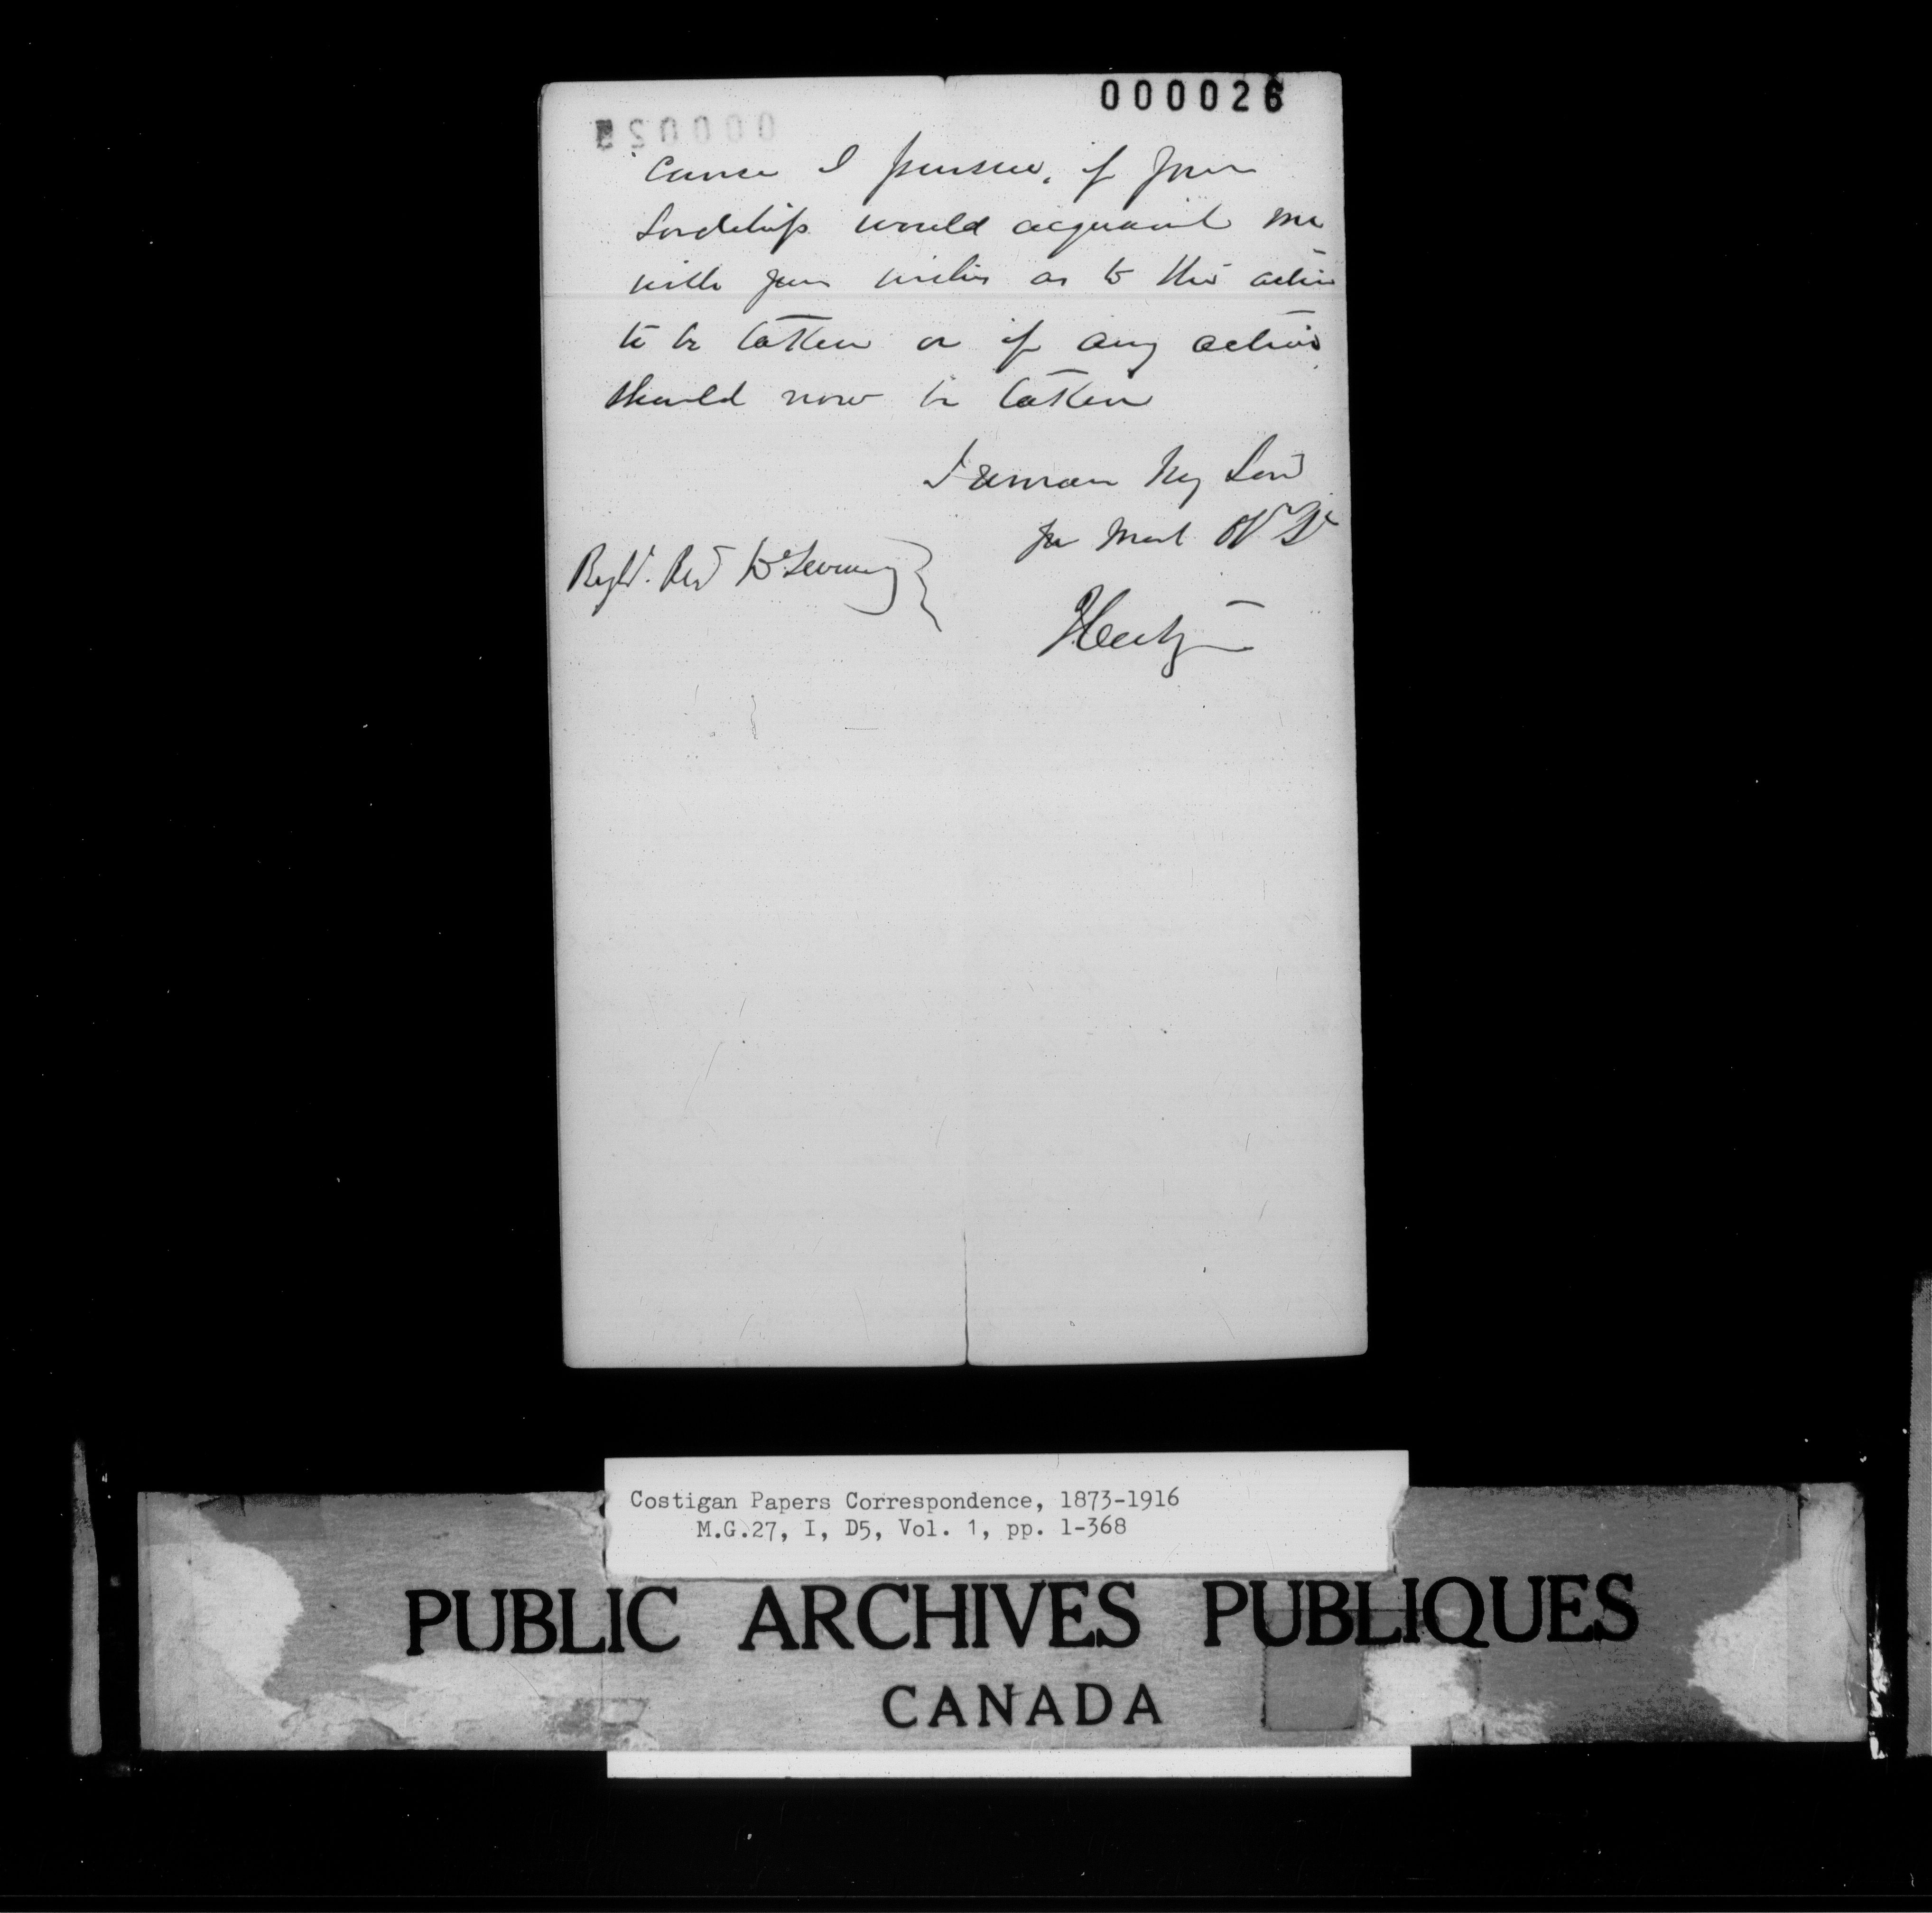 000026
course I pursue, if your
Lordship would acquaint me
with your wishes as to the action
to be taken or if any action
should now be taken
I remain My Lord
Your most Obt St
Right. Revd Dr Sweeney
J Costigan
Costigan Papers Correspondence, 1873-1916
M.G.27, I, D5, Vol. 1, pp. 1-368
PUBLIC ARCHIVES PUBLIQUES
CANADA